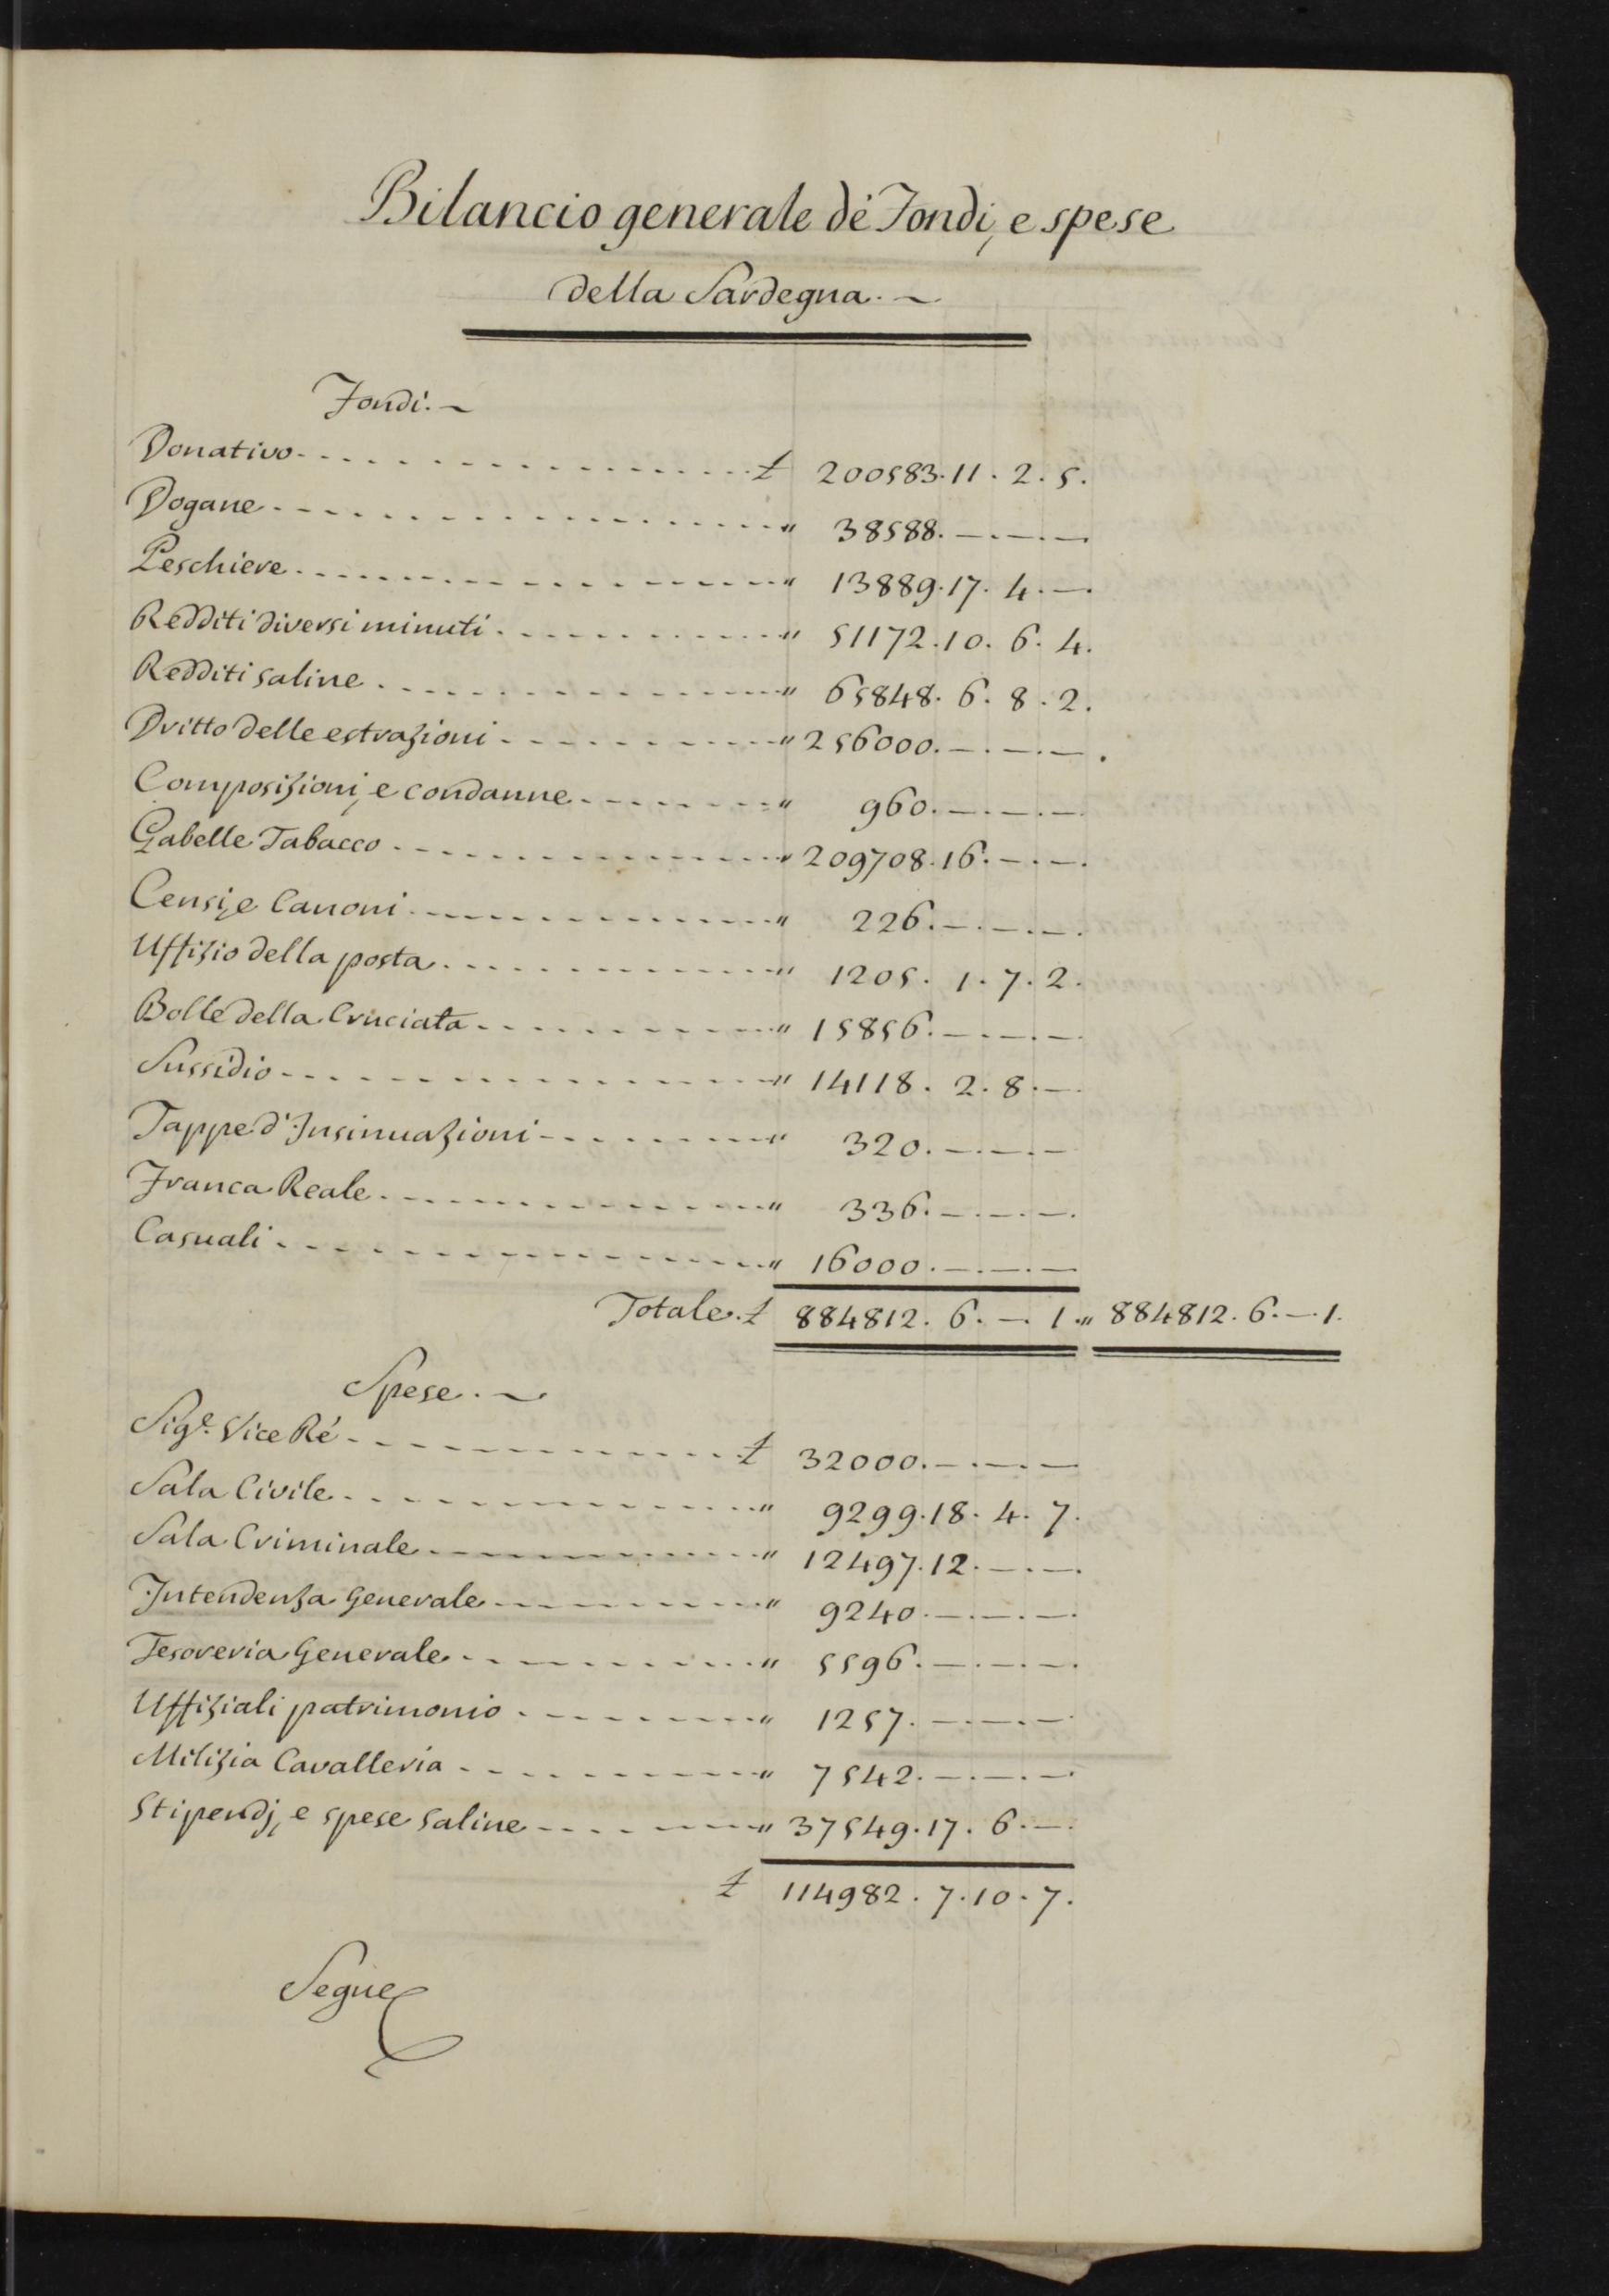 Bilancio generale dè Fondi, e spese
della Sardegna. ~
Fondi. ~
Donativo - - - - - £ 200583. 11. 2. 5.
Dogane - - - - - " 38588. —. —. —
Peschiere - - - - - " 13889. 17. 4. —.
Redditi diversi minuti - - - - - " 51172. 10. 6. 4.
Redditi saline - - - - - " 65848. 6. 8. 2.
Dritto delle estrazioni - - - - - " 256000. —. —. —.
Composizioni, e condanne - - - - - " 960. —. —. —
Gabelle Tabacco - - - - - " 209708. 16. —. —.
Censi, e Canoni - - - - - " 226. —. —. —.
Uffizio della posta - - - - - " 1205. 1. 7. 2.
Bolle della Cruciata - - - - - " 15856. —. —. —
Sussidio - - - - - " 14118. 2. 8. —
Tappe d'Insinuazioni - - - - - " 320. —. —. —
Franca Reale - - - - - " 336. —. —. —.
Casuali - - - - - " 16000. —. —. —
Totale. £ 884812. 6. —. 1. " 884812. 6. —. 1.
Spese. ~
Sigr. Vice Ré - - - - - £ 32000. —. —. —
Sala Civile - - - - - " 9299. 18. 4. 7.
Sala Criminale - - - - - " 12497. 12. —. —.
Intendenza Generale - - - - - " 9240. —. —. —.
Tesoreria Generale - - - - - " 5596. —. —. —.
Uffiziali patrimonio - - - - - " 1257. —. —. —
Milizia Cavalleria - - - - - " 7542. —. —. —
Stipendj, e spese saline - - - - - " 37549. 17. 6. —.
£ 114982. 7. 10. 7.
Segue